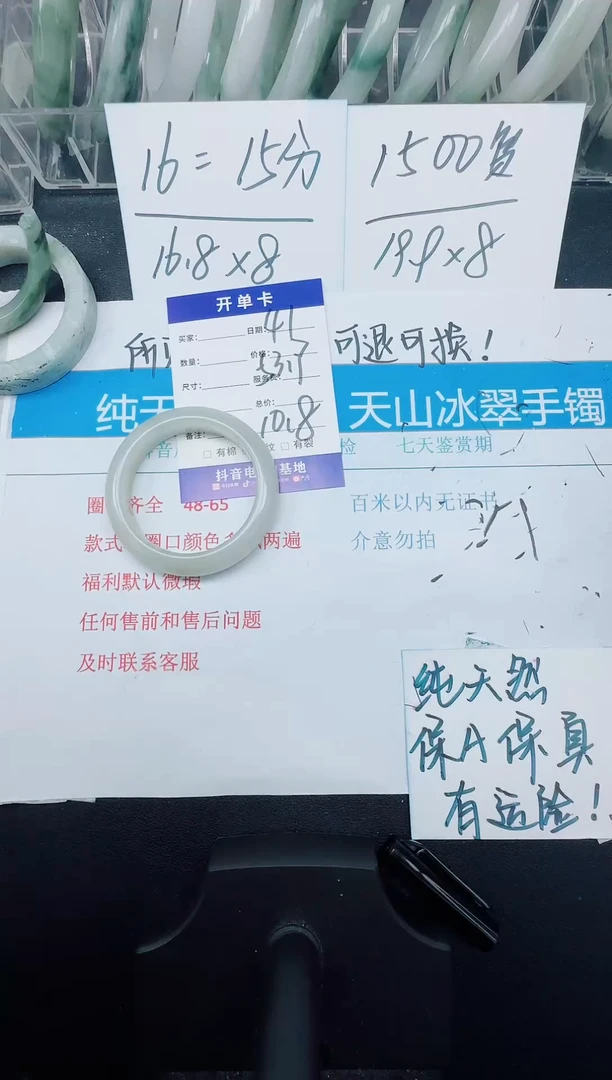 16=15分
16.8×8
1500贸
19.9×8
开单卡
买家：
日期：
41
数量：
价格：
53.7
尺寸：
服务费：
总价：
10.8
备注：
有棉
纹
有裂
抖音电
基地
所
可退可换！
纯天
天山冰翠手镯
抖音
检
七天鉴赏期
圈
齐全 48-65
百米以内无证书
款式
圈口颜色
两遍
介意勿拍
福利默认微瑕
任何售前和售后问题
及时联系客服
纯天然
保A保真
有运险！